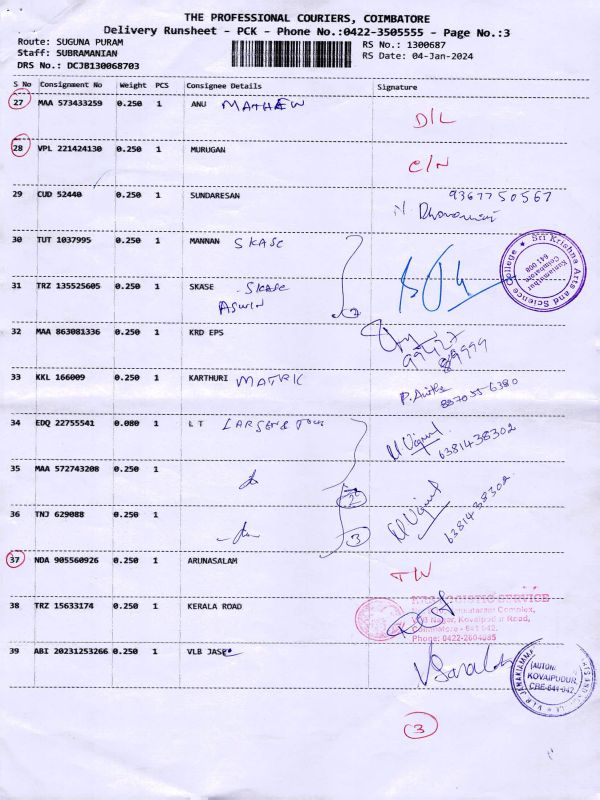 THE PROFESSIONAL COURIERS, COIMBATORE
Delivery Runsheet - PCK - Phone No.:0422-3505555 - Page No.:3
Route: SUGUNA PURAM
Staff: SUBRAMANIAN
DRS No.: DCJB130068703
RS No.: 1300687
RS Date: 04-Jan-2024
S No Consignment No Weight PCS Consignee Details Signature
27 MAA 573433259 0.250 1 ANU MATHEW D/L
28 VPL 221424130 0.250 1 MURUGAN C/N
29 CUD 52440 0.250 1 SUNDARESAN 9367750567
30 TUT 1037995 0.250 1 MANNAN SKASC
Sri Krishna Arts and Science College
Kuniamuthur
Coimbatore
641 008
31 TRZ 135525605 0.250 1 SKASE SKASC
ASWIN
32 MAA 863081336 0.250 1 KRD EPS 99427
89999
33 KKL 166009 0.250 1 KARTHURI MATRIC
34 EDQ 22755541 0.080 1 L T LARSEN & 6381438302
35 MAA 572743208 0.250 1
36 TNJ 629088 0.250 1 6381438302
3
37 NDA 905560926 0.250 1 ARUNASALAM
38 TRZ 15633174 0.250 1 KERALA ROAD
SERVICE
Complex,
Nagar, Kovaipudur Road,
Coimbatore - 641 042.
Phone: 0422-2604085
39 ABI 20231253266 0.250 1 VLB JASC
(AUTON)
KOVAIPUDUR
CBE-641 042
3